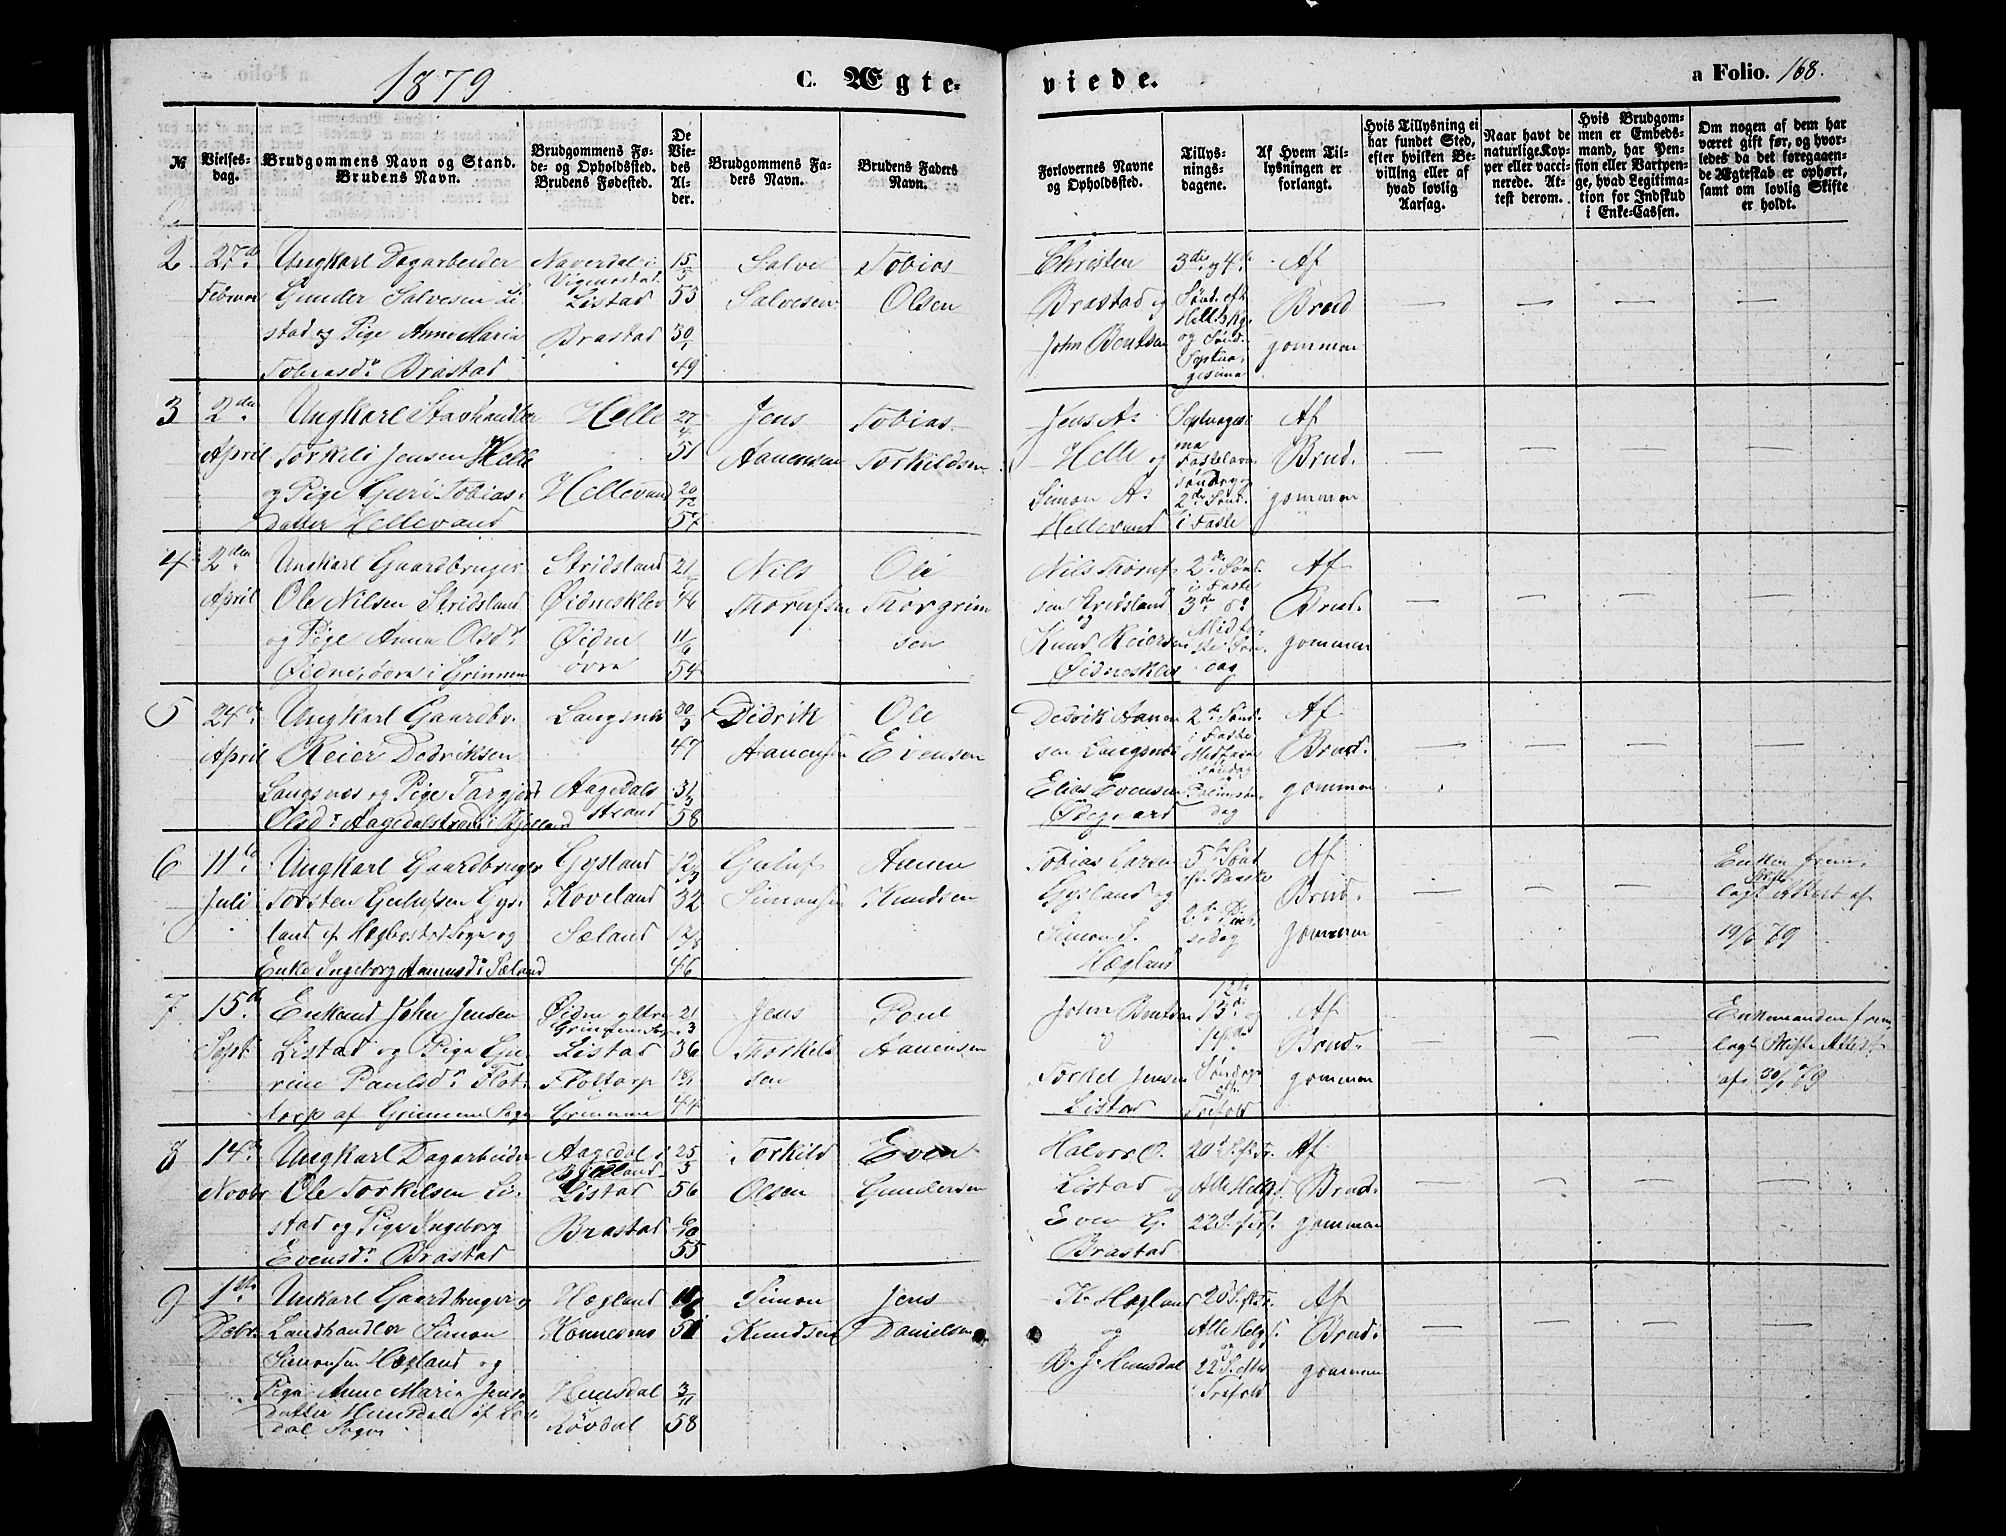 1879
C. Ægte-
viede.
a Folio. 168.
№
Vielses-
dag.
Brudgommens Navn og Stand.
Brudens Navn.
Brudgommens Fø-
de- og Opholdssted.
Brudens Fødested.
De
Vie-
des
Al-
der.
Brudgommens Fa-
ders Navn.
Brudens Faders
Navn.
Forlovernes Navne
og Opholdssted.
Tillys-
nings-
dagene.
Af Hvem Til-
lysningen er
forlangt.
Hvis Tillysning ei
har fundet Sted,
efter hvilken Be-
villing eller af
hvad lovlig
Aarsag.
Naar havt de
naturlige Kop-
per eller vacci-
nerede. At-
test derom.
Hvis Brudgom-
men er Embeds-
mand, har Pen-
sion eller Vartpen-
ge, hvad Legitima-
tion for Indskud
i Enke-Cassen.
Om nogen af dem har
været gift før, og hvor-
ledes da det foregaaen-
de Ægteskab er ophørt,
samt om lovlig Skifte
er holdt.
2
27de
Februar
Ungkarl Dagarbeider
Gunder Salvesen Li-
stad og Pige Anne Maria
Tobiasdr Brastad
Naverdal i
Vigmostad
Listad
Brastad
15/5
53
30/1
49
Salve
Salvesen
Tobias
Olsen
Christen
Brastad og
John Bentsen
3die og 4de
Sønd. eft.
Hell. 3 Kg.
og Sønd.
Septua-
gesima
Af
Brud
gommen
3
2den
April
Ungkarl Stavhandler
Torkild Jensen Helle
og Pige Guri Tobias-
datter Hellevand
Helle
Hellevand
27/4
51
20/12
57
Jens
Aanensen
Tobias
Torkildsen
Jens A.
Helle og
Simon A.
Hellevand
Septuagesi-
ma
Fastelavn
Søndag og
2den Sønd.
i Faste
Af
Brud-
gommen
4
2den
April
Ungkarl Gaardbruger
Ole Nilsen Stridsland
og Pige Anna Olsdr
Øidne, øvre i Grinnem
Stridsland
Øidnesklev
Øidne
øvre
21/
46
11/6
54
Nils
Thorufsen
Ole
Thorgrim
sen
Nils Thoruf-
sen Stridsland
og
Knud Reiersen
Øidnesklev
2de Sønd.
i Faste
3die do
Midfa-
ste Søn-
dag
Af
Brud-
gommen
5
24de
April
Ungkarl Gaardbr.
Reier Dedriksen
Langsnæs og Pige Targjerd
Olsdr Aagedalstrand i Bjelland
Langsnæs
Aagedals
strand
30/5
47
31/3
58
Didrik
Aanensen
Ole
Evensen
Dedrik Aanen
sen Langsnæs
Elias Evensen
Ødegaard
2de Sønd.
i Faste
Midfaste
Søndag
Palmesøn-
dag
Af
Brud-
gommen
6
11te
Juli
Ungkarl Gaardbruger
Torsten Gulufsen Gys-
land af Hægbostad Sogn og
Enke Ingeborg Aanensdr Sæland
Gysland
Koveland
Sæland
12/3
32
12/8
46
Guluf
Simonsen
Aanen
Knudsen
Tobias Larsen
Gysland og
Simon S.
Hægland
5te Sønd
eft. Paaske
2den Pint-
sedag
Af
Brud-
gommen
Enken frem-
lagt Skifteattest af
19/6 79
7
15de
Septbr
Enkemd John Jensen
Listad og Pige Gu-
rine Paulsdr Flot-
torp af Grinnem Sogn
Øidne ytre
Grinnem Sogn
Listad
Flottorp
Grinnem
21/3
36
18/1
44
Jens
Thorkild
sen
Poul
Aanensen
John Bentsen
Torkel Jensen
Listad
12te
13de og
14de
Søndag
eft.
Trefold
Af
Brud-
gommen
Enkemanden frem
lagt Skifte Attest
af 30/ 79
8
14de
Novbr
Ungkarl Dagarbeider
Ole Torkelsen Li-
stad og Pige Ingeborg
Evensdr Brastad
Aagedal i
Bjelland
Listad
Brastad
25/5
56
6/10
55
Torkild
Olsen
Even
Gundersen
Halvor O.
Listad og
Even G.
Brastad
20de S. eft. Tr.
Alle Helgd.
22 S. eft. Tr.
Af
Brud-
gommen
9
1ste
Decbr.
Unkarl Gaardbruger og
Landhandler Simon
Simonsen Hægland og
Pige Anne Maria Jens-
datter Hunsdal af Lau-
dal Sogn
Hægland
Konnesmo
Hunsdal
Løvdal
51
3/11
58
Simon
Knudsen
Jens
Danielsen
K. Hægland
og
B. J. Hunsdal
20 S. eft. Tr.
Alle Helgd.
og
22 S. efter
Trefold
Af
Brud-
gommen